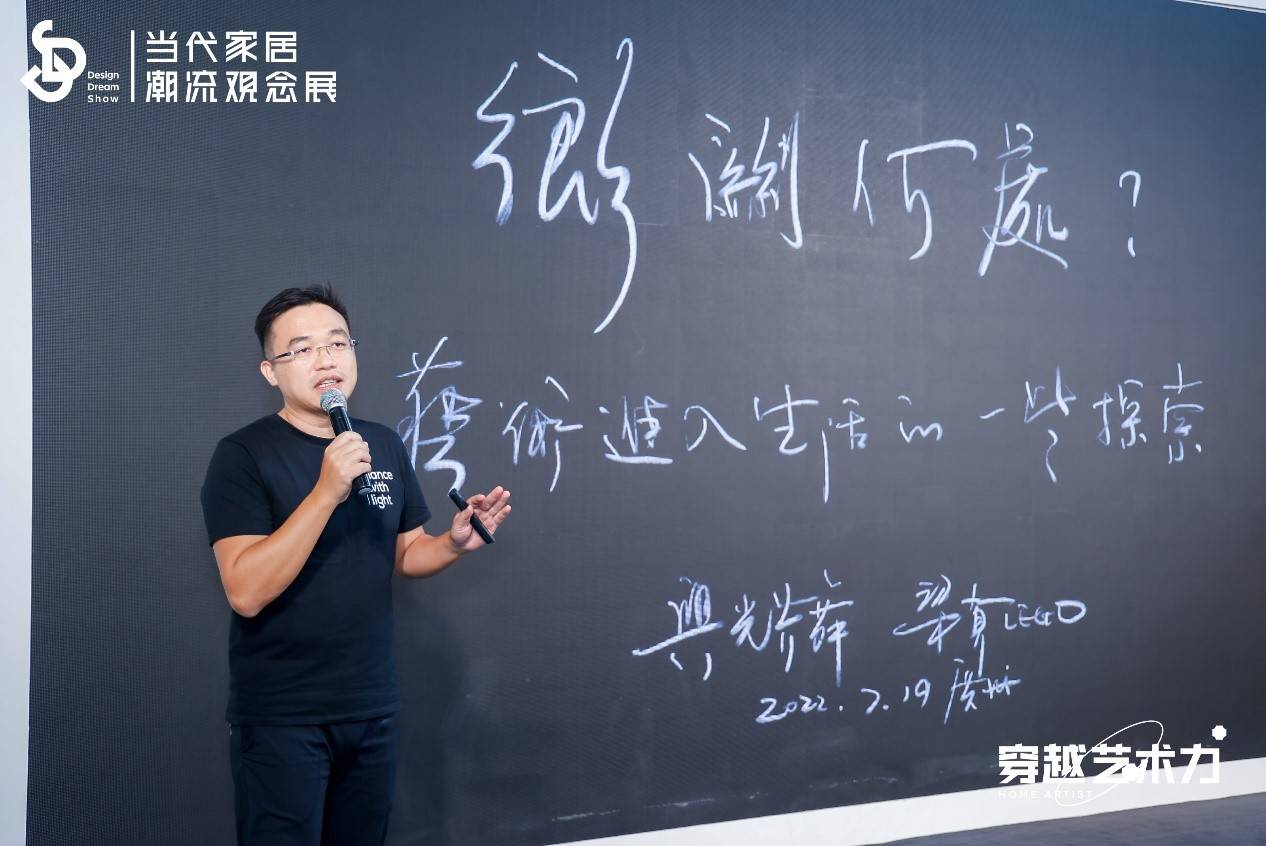 当代家居
潮流观念展
Design
Dream
Show
鄉關何處？
藝術進入生活的一些探索
與光共舞 梁真LEGO
2022.7.19 廣州
with
light
穿越艺术力
HOME ARTIST